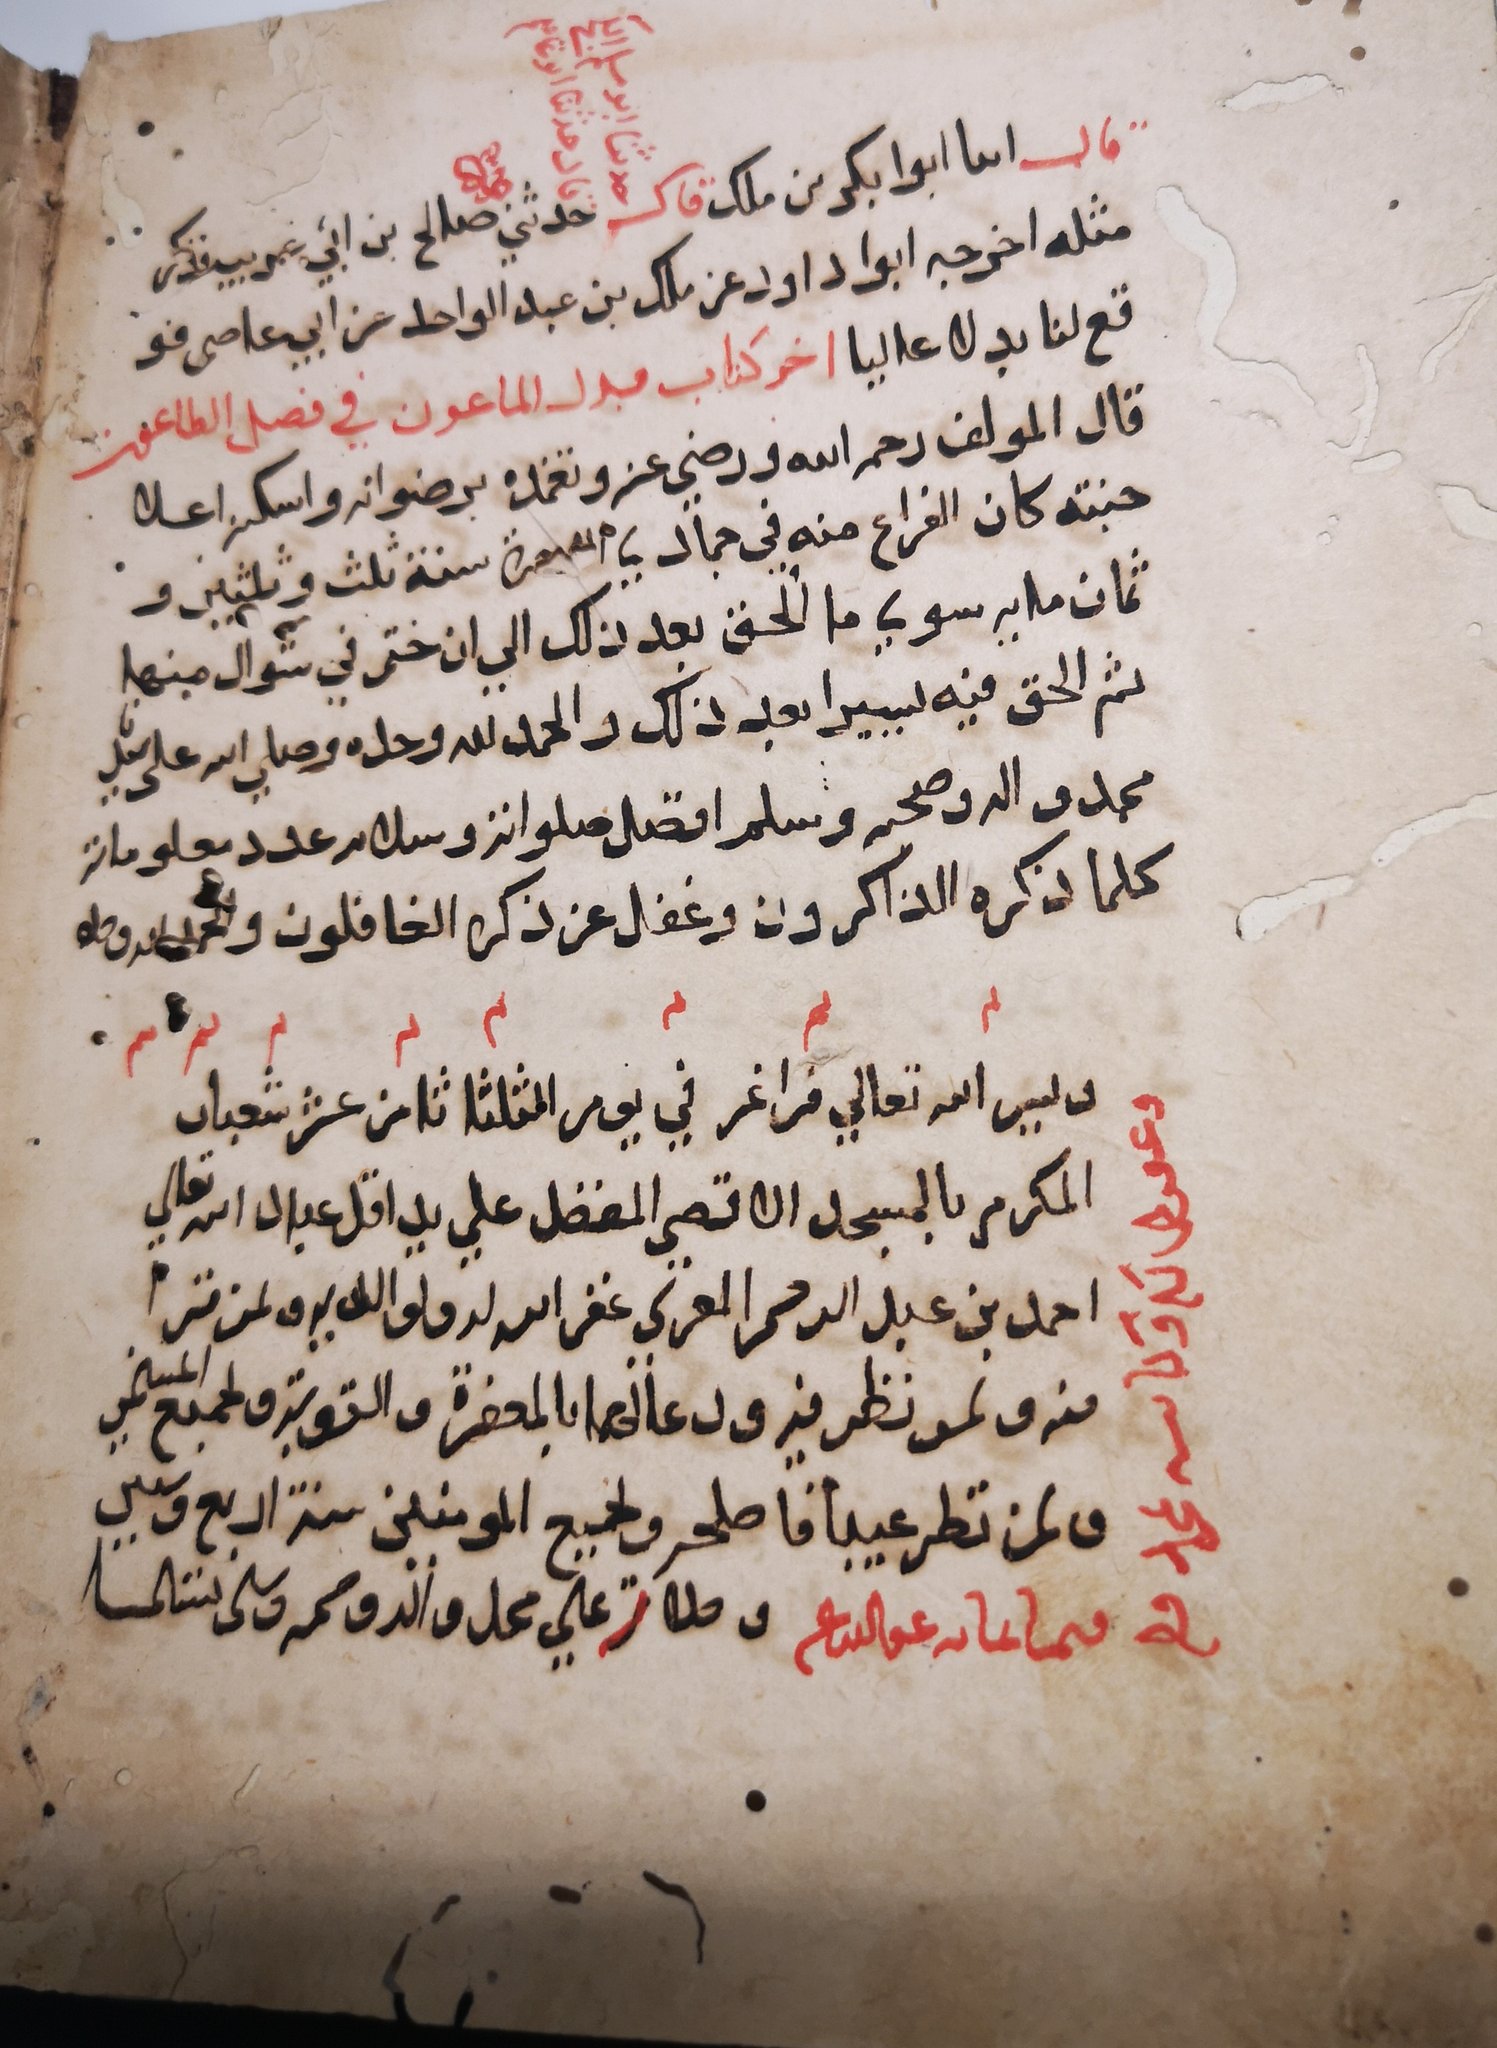 حدثنا ابو مسلم
قال حدثنا ابو عاصم
صح
قال انبا ابوا بكر بن ملك قال حدثني صالح بن ابي غريب فذكر
مثله اخرجه ابوا داود عن ملك بن عبد الواحد عن ابي عاصم فو
قع لنا بدلا عاليا اخر كتاب بذل الماعون في فضل الطاعون
قال المولف رحمه الله ورضي عنه وتغمده برضوانه واسكنه اعلا
جنته كان الفراغ منه في جمادي سنة ثلث وثلثين و
ثمان مايه سوي ما الحق بعد ذلك الي ان ختم في شوال منها
ثم الحق فيه يسيرا بعد ذلك والحمد لله وحده وصلي الله علي سيدنا
محمد واله وصحبه وسلم افضل صلواته وسلامه عدد معلوماته
كلما ذكره الذاكرون وغفل عن ذكره الغافلون والحمد لله وحده
م م م م م م م م
ويسر الله تعالي فراغه في يوم الثلثا ثامن عشر شعبان
المكرم بالمسجد الاقصي المفضل علي يد اقل عباد الله تعالي
احمد بن عبد الرحمن غفر الله له ولوالديه ولمن قرا
منه ولمن نظر فيه ودعا لهما بالمغفرة والتوبة ولجميع المسلمين
ولمن نظر عيبا فاصلحه ولجميع المومنين سنة اربع
وثمانمايه وصلاته علي محمد واله وصحبه وسلم